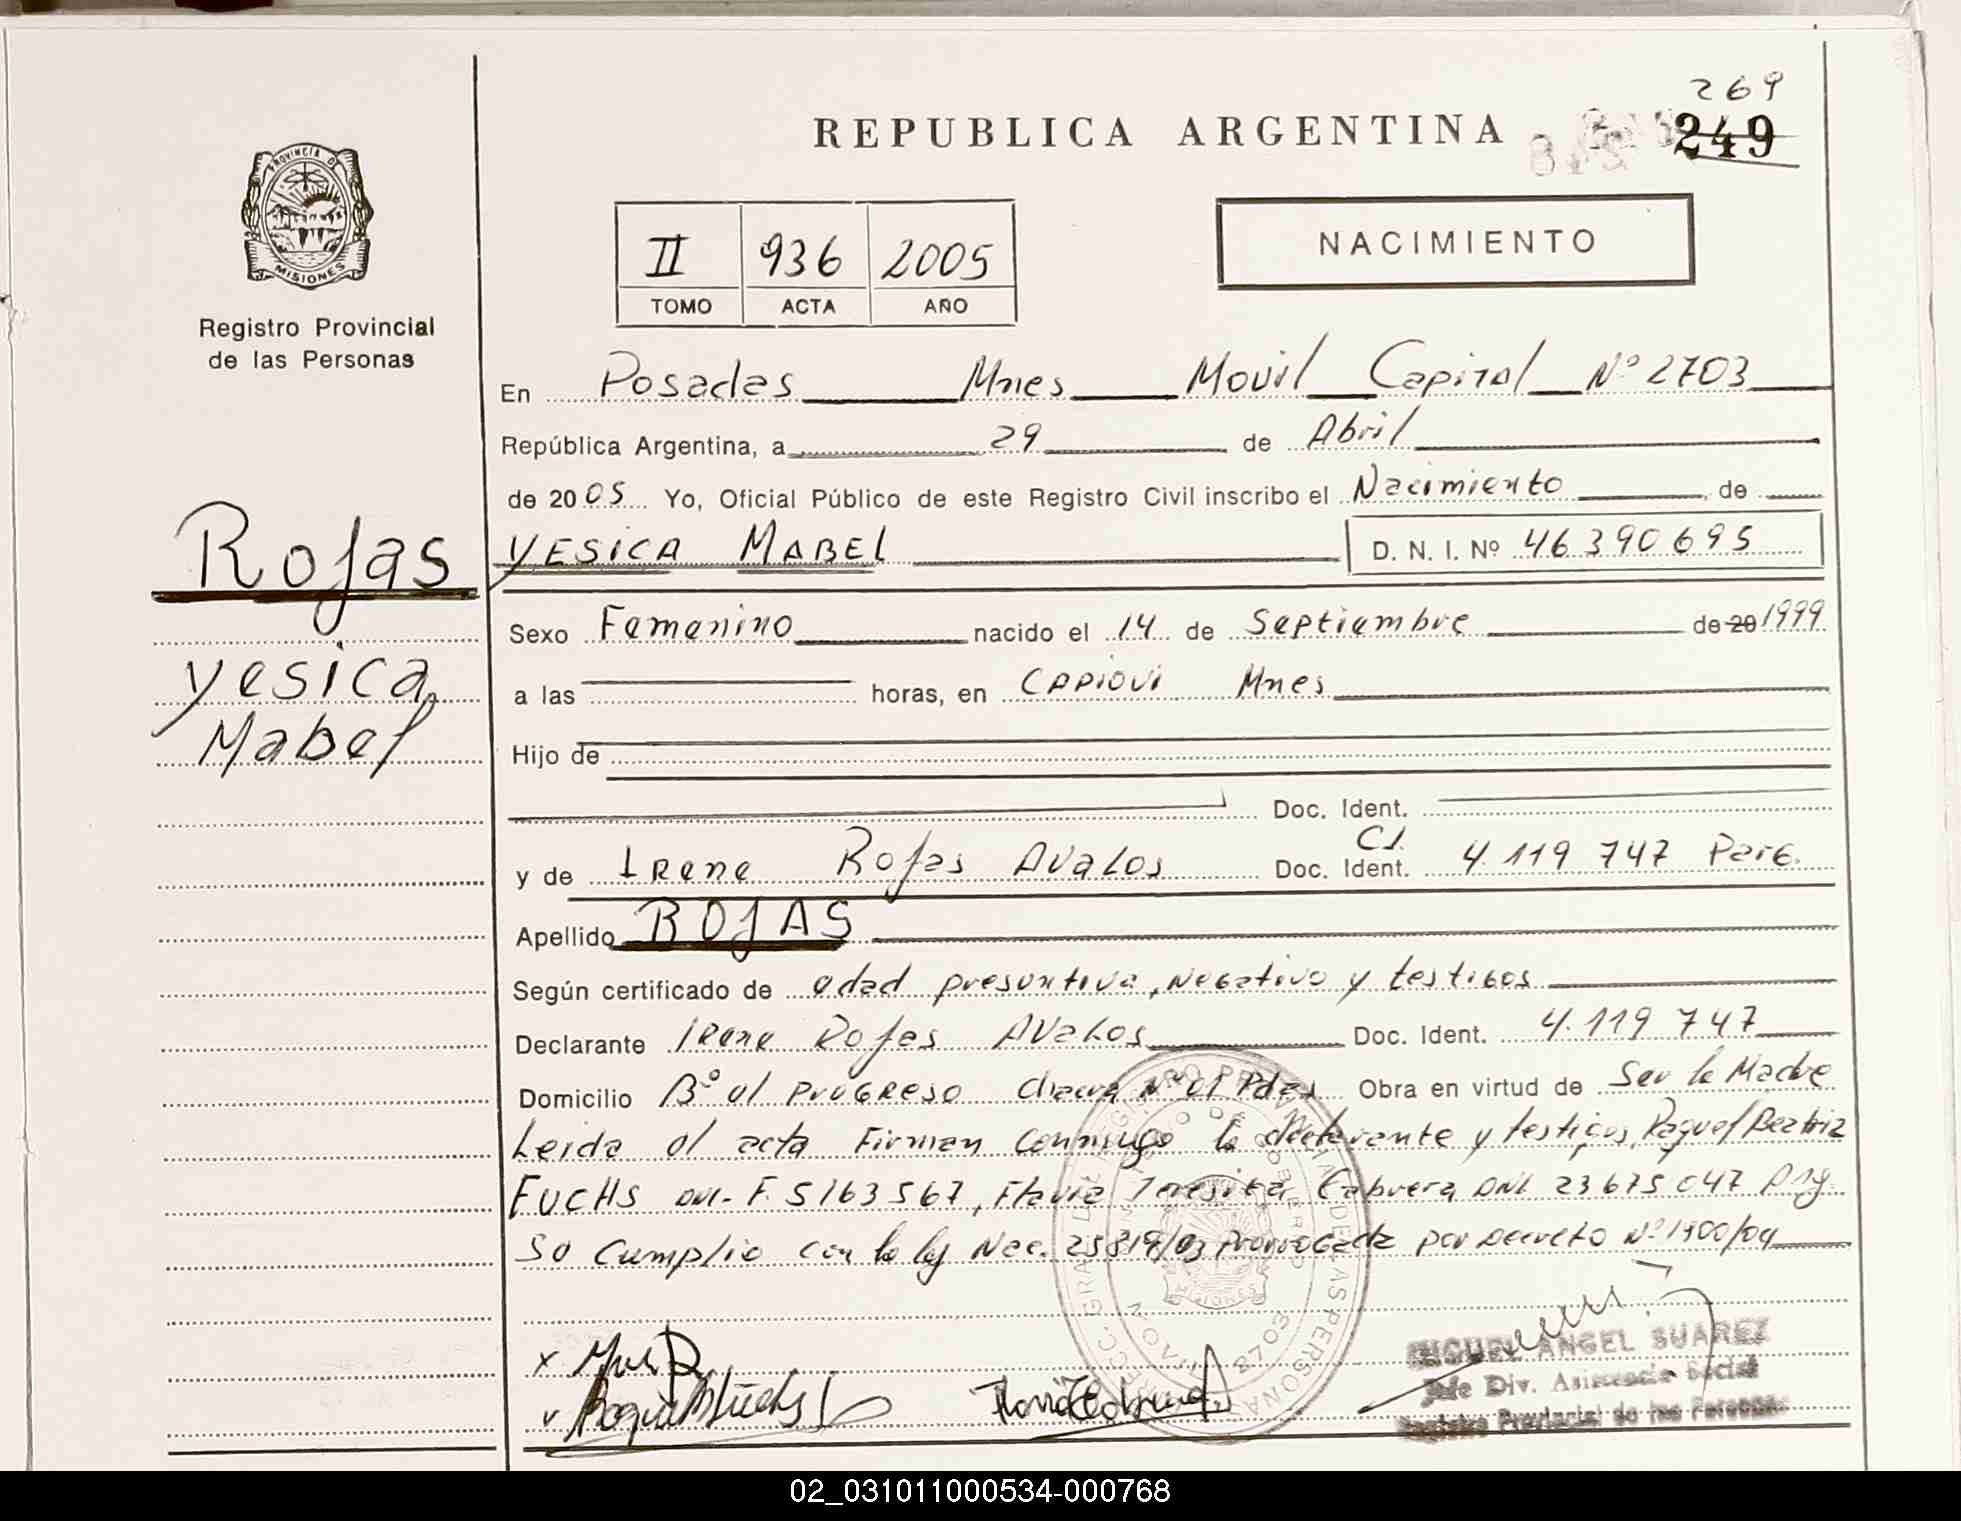 269
REPUBLICA ARGENTINA
249
PROVINCIA D
MISIONES
Registro Provincial
de las Personas
II 936 2005
TOMO ACTA AÑO
NACIMIENTO
En Posadas Mnes Movil Capital Nº 2703
República Argentina, a 29 de Abril
de 2005 Yo, Oficial Público de este Registro Civil inscribo el Nacimiento, de
Rojas
YESICA MABEL D. N. I. Nº 46.390.695
Sexo Femenino nacido el 14 de Septiembre de 20 1999
yesica
Mabel
a las horas, en CAPIOVI Mnes
Hijo de
Doc. Ident.
y de IRENE Rojas AVALOS Doc. Ident. C.I. 4.119.747 Parg.
Apellido ROJAS
Según certificado de edad presuntiva, Negativo y testigos
Declarante IRENE Rojas AVALOS Doc. Ident. 4.119.747
Domicilio Bº el PROGRESO Chacra Nº 01 Pdas Obra en virtud de Ser la Madre
Leida el acta Firman Conmigo la declarante y testigos, Raquel Beatriz
FUCHS DNI. F. 5163567, Flavia Teresita Cabrera DNI 23675047 Arg.
Se cumplio con la ley Nac. 25819/03 Prorrogada por Decreto Nº 1900/04
MISIONES
2703
MIGUEL ANGEL SUAREZ
Jefe Div. Asistencia Social
Registro Provincial de las Personas
02_031011000534-000768